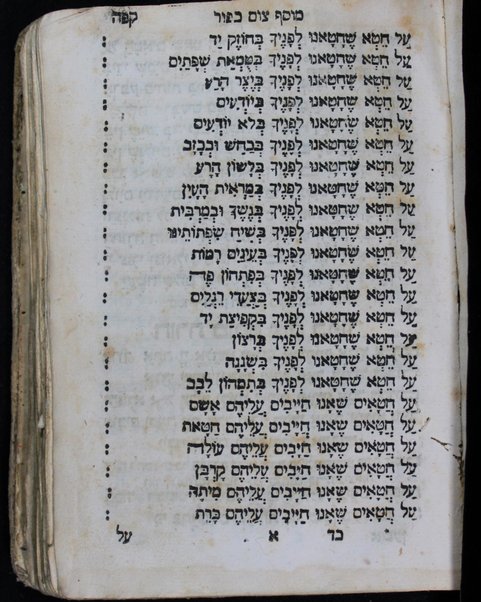 מוסף צום כפור קפה
עַל חֵטְא שֶׁחָטָאנוּ לְפָנֶיךָ בְּחוֹזֶק יָד
עַל חֵטְא שֶׁחָטָאנוּ לְפָנֶיךָ בְּטֻמְאַת שְׂפָתַיִם
עַל חֵטְא שֶׁחָטָאנוּ לְפָנֶיךָ בְּיֵצֶר הָרָע
עַל חֵטְא שֶׁחָטָאנוּ לְפָנֶיךָ בְּיוֹדְעִים
עַל חֵטְא שֶׁחָטָאנוּ לְפָנֶיךָ בְּלֹא יוֹדְעִים
עַל חֵטְא שֶׁחָטָאנוּ לְפָנֶיךָ בְּכַחַשׁ וּבְכָזָב
עַל חֵטְא שֶׁחָטָאנוּ לְפָנֶיךָ בְּלָשׁוֹן הָרָע
עַל חֵטְא שֶׁחָטָאנוּ לְפָנֶיךָ בְּמַרְאִית הָעָיִן
עַל חֵטְא שֶׁחָטָאנוּ לְפָנֶיךָ בְּנֶשֶׁךְ וּבְמַרְבִּית
עַל חֵטְא שֶׁחָטָאנוּ לְפָנֶיךָ בְּשִׂיחַ שִׂפְתוֹתֵינוּ
עַל חֵטְא שֶׁחָטָאנוּ לְפָנֶיךָ בְּעֵינַיִם רָמוֹת
עַל חֵטְא שֶׁחָטָאנוּ לְפָנֶיךָ בְּפִתְחוֹן פֶּה
עַל חֵטְא שֶׁחָטָאנוּ לְפָנֶיךָ בְּצַעֲדֵי רַגְלַיִם
עַל חֵטְא שֶׁחָטָאנוּ לְפָנֶיךָ בִּקְפִיצַת יָד
עַל חֵטְא שֶׁחָטָאנוּ לְפָנֶיךָ בְּרָצוֹן
עַל חֵטְא שֶׁחָטָאנוּ לְפָנֶיךָ בִּשְׁגָגָה
עַל חֵטְא שֶׁחָטָאנוּ לְפָנֶיךָ בְּתִמְהוֹן לֵבָב
עַל חֲטָאִים שֶׁאָנוּ חַיָּיבִים עֲלֵיהֶם אָשָׁם
עַל חֲטָאִים שֶׁאָנוּ חַיָּיבִים עֲלֵיהֶם חַטָּאת
עַל חֲטָאִים שֶׁאָנוּ חַיָּבִים עֲלֵיהֶם עוֹלָה
עַל חֲטָאִים שֶׁאָנוּ חַיָּבִים עֲלֵיהֶם קָרְבָּן
עַל חֲטָאִים שֶׁאָנוּ חַיָּיבִים עֲלֵיהֶם מִיתָה
עַל חֲטָאִים שֶׁאָנוּ חַיָּיבִים עֲלֵיהֶם כָּרֵת
כד א על